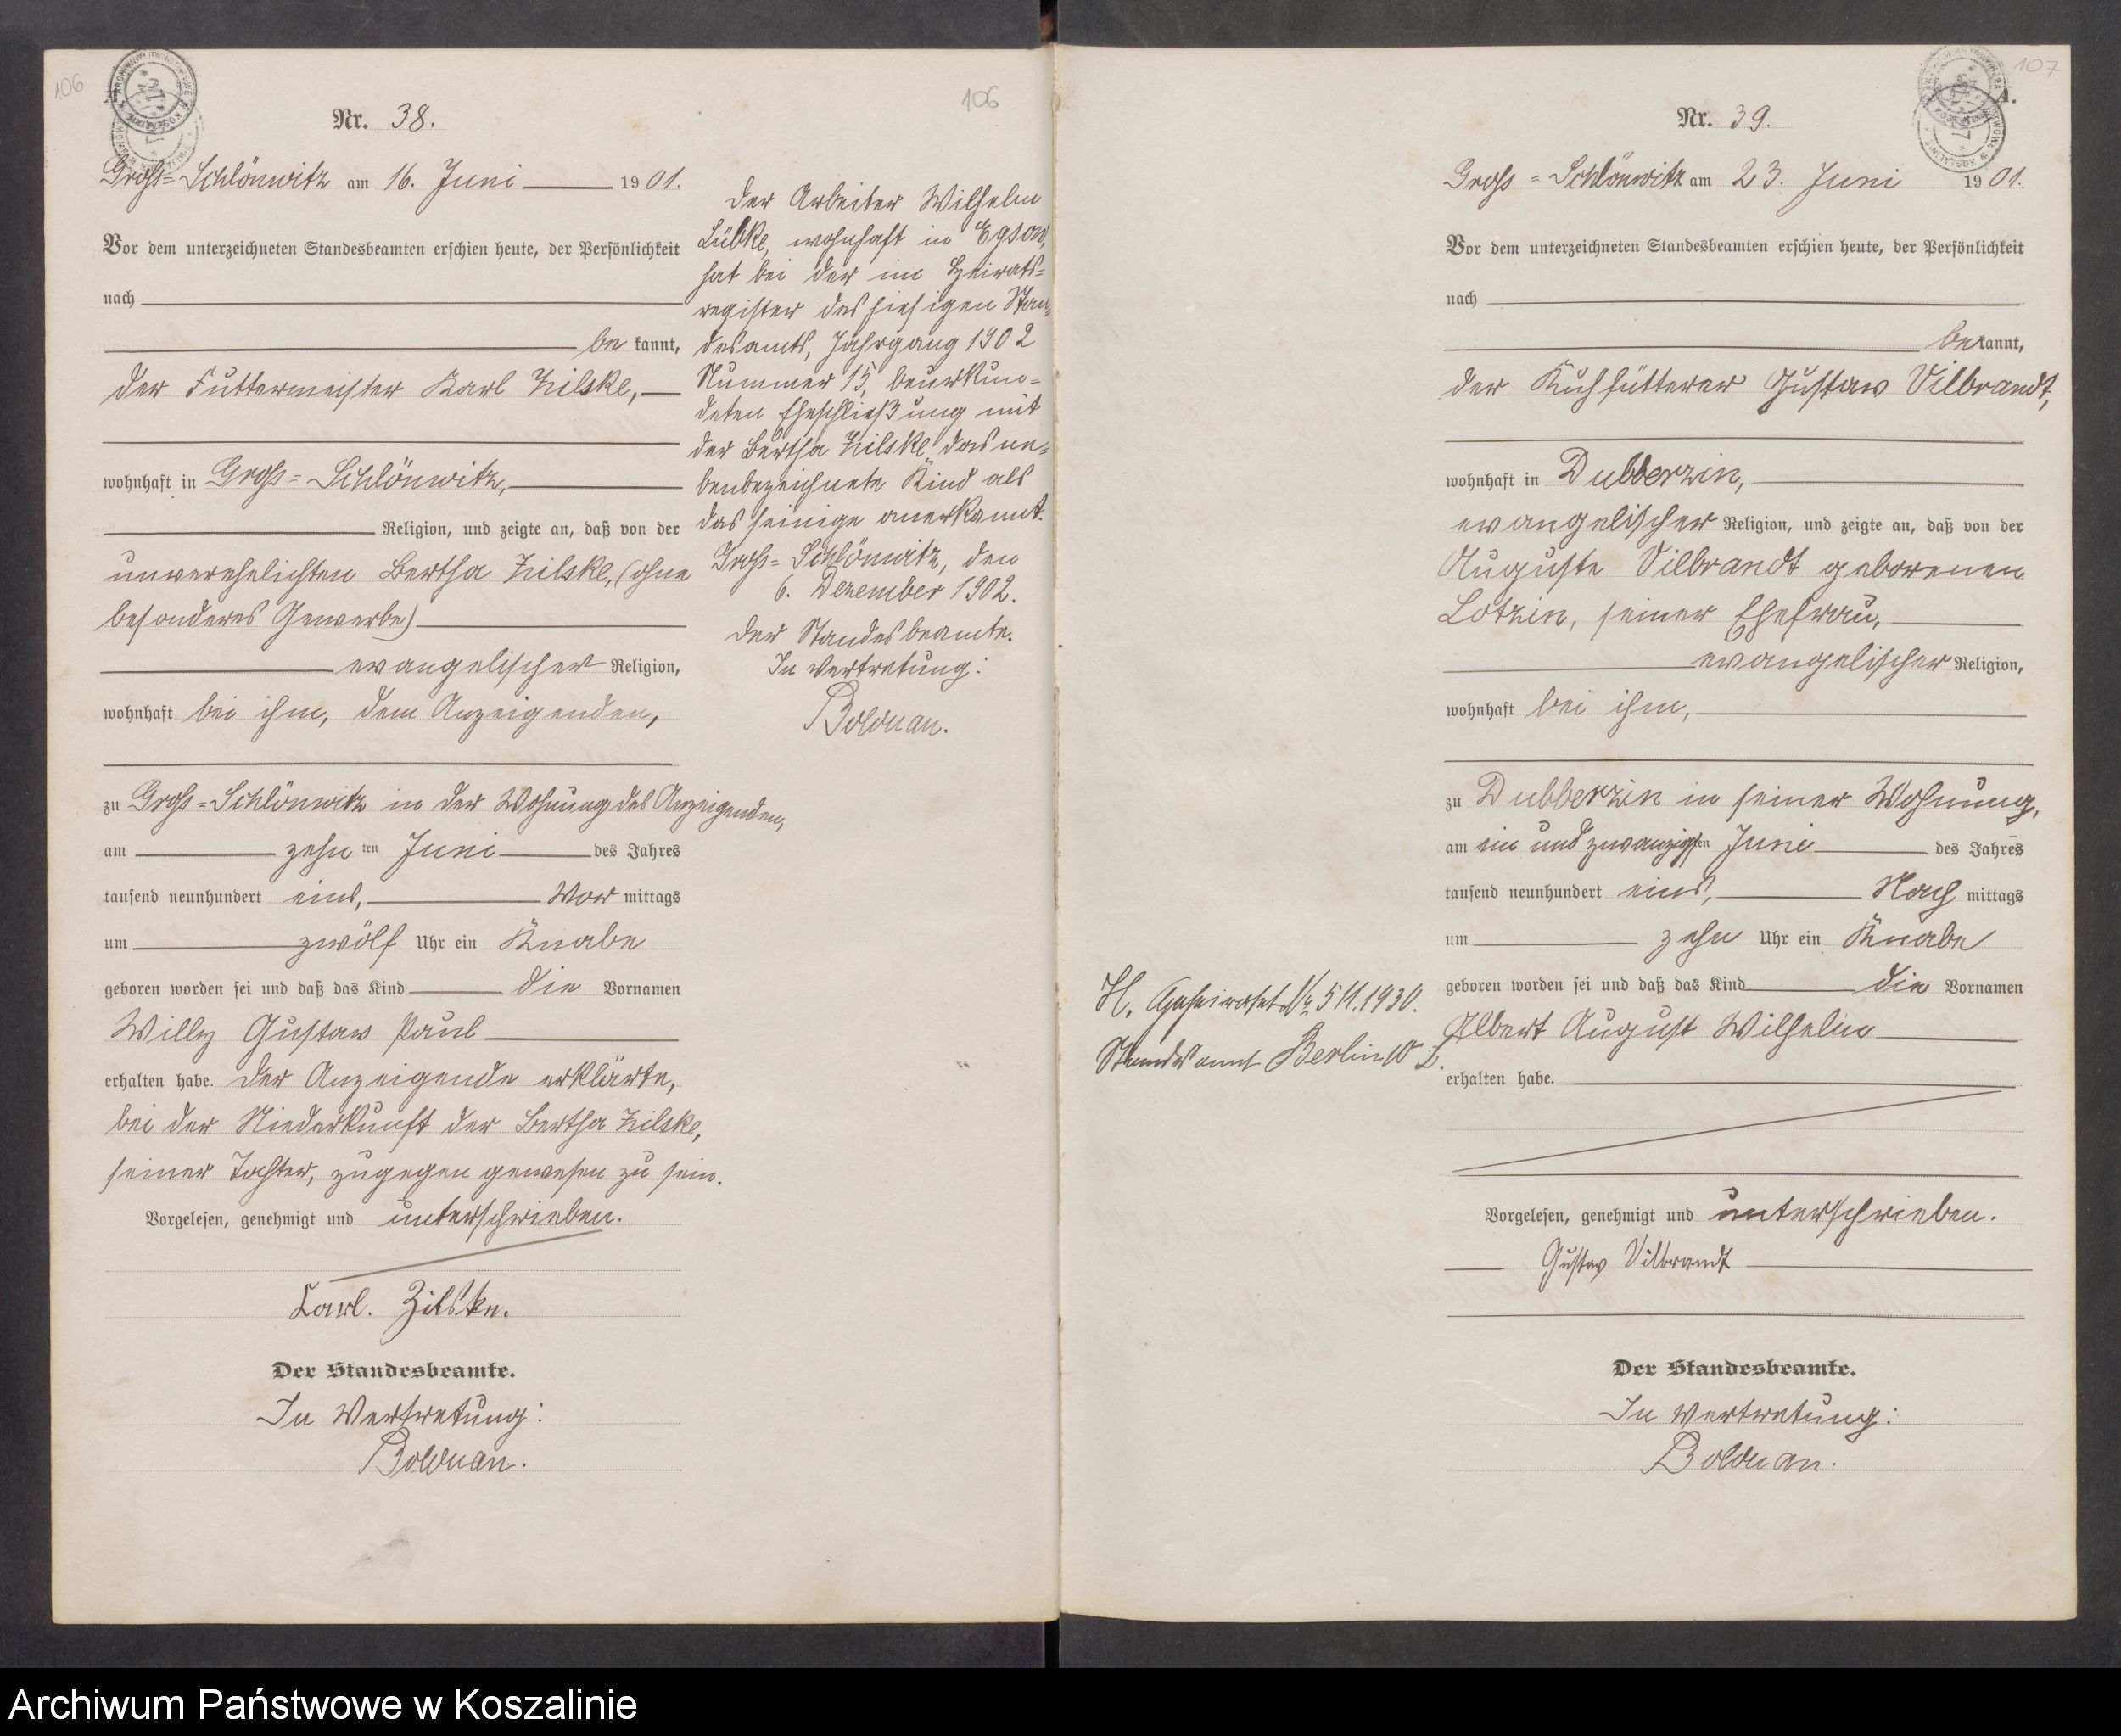 106
Nr. 38.
Gross-Schlönwitz am 16. Juni 1901.
Vor dem unterzeichneten Standesbeamten erschien heute, der Persönlichkeit
nach
be kannt,
der Futtermeister Karl Zilske,
wohnhaft in Gross-Schlönwitz,
Religion, und zeigte an, daß von der
unverehelichten Bertha Zilske, (ohne
besonderes Gewerbe)
evangelischer Religion,
wohnhaft bei ihm, dem Anzeigenden,
zu Gross-Schlönwitz in der Wohnung des Anzeigenden,
am zehn ten Juni des Jahres
tausend neunhundert eins, Vor mittags
um zwölf Uhr ein Knabe
geboren worden sei und daß das Kind die Vornamen
Willy Gustav Paul
erhalten habe. Der Anzeigende erklärte,
bei der Niederkunft der Bertha Zilske,
seiner Tochter, zugegen gewesen zu sein.
Vorgelesen, genehmigt und unterschrieben.
Karl. Zilske.
Der Standesbeamte.
In Vertretung:
Bolduan.
106
Der Arbeiter Wilhelm
Lübke, wohnhaft in Egsow,
hat bei der im Heirats-
register des hiesigen Stan-
desamts, Jahrgang 1902
Nummer 15, beurkun-
deten Eheschließung mit
der Bertha Zilske das ne-
benbezeichnete Kind als
das seinige anerkannt.
Gross-Schlönwitz, den
6. Dezember 1902.
Der Standesbeamte.
In Vertretung:
Bolduan.
107
A.
Nr. 39.
Gross-Schlönwitz am 23. Juni 1901.
Vor dem unterzeichneten Standesbeamten erschien heute, der Persönlichkeit
nach
be kannt,
der Kuhfütterer Gustav Vilbrandt,
wohnhaft in Dubberzin,
evangelischer Religion, und zeigte an, daß von der
Auguste Vilbrandt geborenen
Lotzin, seiner Ehefrau,
evangelischer Religion,
wohnhaft bei ihm,
zu Dubberzin in seiner Wohnung,
am ein und zwanzigsten Juni des Jahres
tausend neunhundert eins, Nach mittags
um zehn Uhr ein Knabe
geboren worden sei und daß das Kind die Vornamen
Albert August Wilhelm
erhalten habe.
Vorgelesen, genehmigt und unterschrieben.
Gustav Vilbrandt
Der Standesbeamte.
In Vertretung:
Bolduan.
H. Geheiratet Nr 511.1930.
Standesamt Berlin
Archiwum Państwowe w Koszalinie